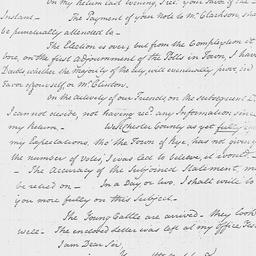 on my return last Evening I rec.^d your favor of the
Instant. — The Payment of your Note to M.^r Clarkson sha
be punctually attended to —
The Election is over, but from the Complexion it
bore, on the first adjournment of the Polls in Town, I hav
Doubts whether the Majority of the City will eventually prove in
favor of yourself or M.^r Clinton.
On the activity of our Friends, on the subsequent D
I can not decide, not having rec.^d any Information since
my Return — Westchester County as yet fully
my Expectations, tho' the Town of Rye, has not given
the number of Votes, I was led to believe, it would —
— The Accuracy of the Subjoined Statement, m
be relied on — In a Day or two, I shall write to
you more fully on this Subject. —
The Young Cattle are arrived — they look
well — The enclosed letter was left at my Office
I am Dear Sir,